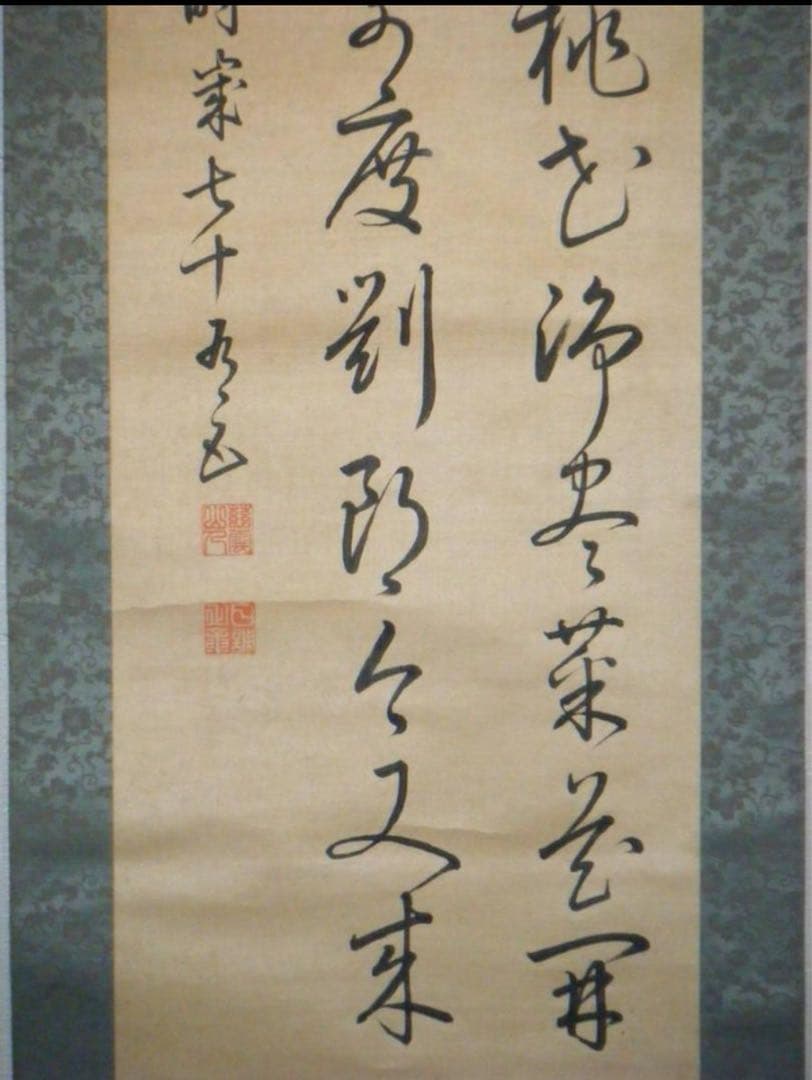 桃花淨盡菜花開
前度劉郎今又来
時歳七十有五